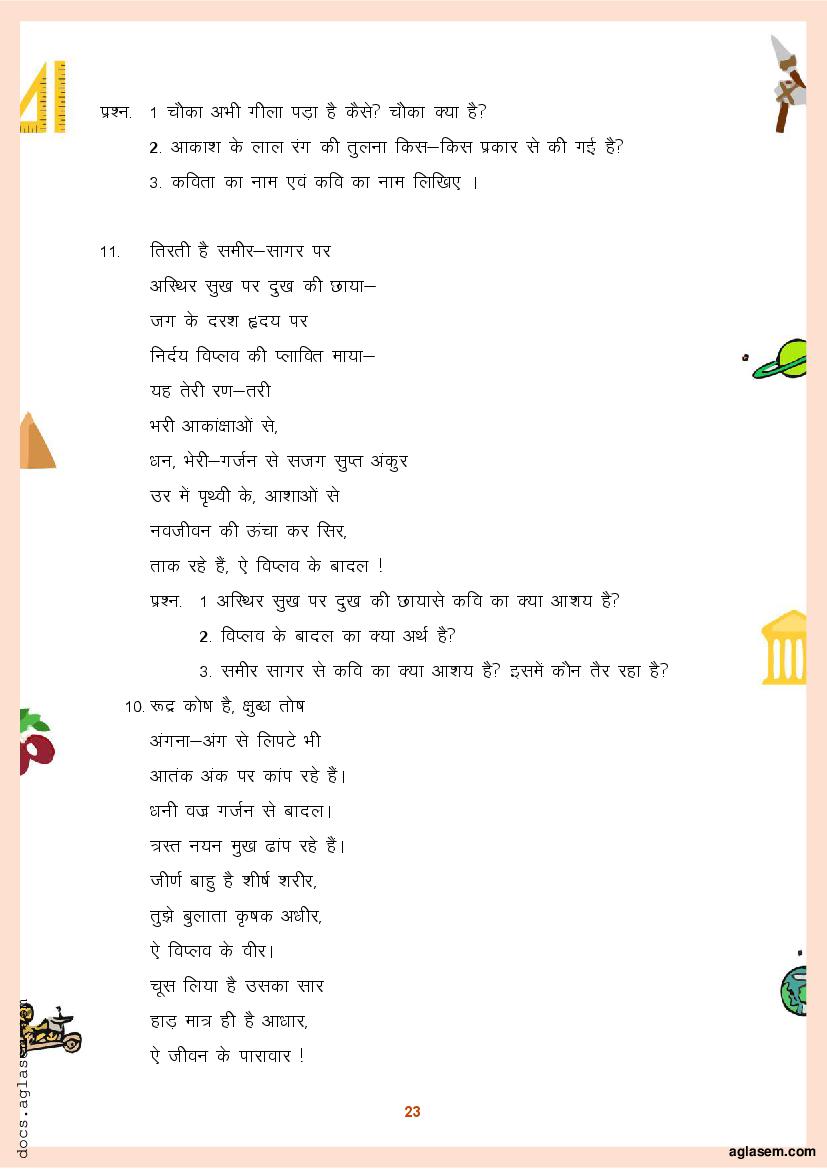 प्रश्न. 1 चौका अभी गीला पड़ा है कैसे? चौका क्या है?
2. आकाश के लाल रंग की तुलना किस–किस प्रकार से की गई है?
3. कविता का नाम एवं कवि का नाम लिखिए ।
11. तिरती है समीर–सागर पर
अस्थिर सुख पर दुख की छाया–
जग के दरश हृदय पर
निर्दय विप्लव की प्लावित माया–
यह तेरी रण–तरी
भरी आकांक्षाओं से,
धन, भेरी–गर्जन से सजग सुप्त अंकुर
उर में पृथ्वी के, आशाओं से
नवजीवन की ऊंचा कर सिर,
ताक रहे हैं, ऐ विप्लव के बादल !
प्रश्न. 1 अस्थिर सुख पर दुख की छायासे कवि का क्या आशय है?
2. विप्लव के बादल का क्या अर्थ है?
3. समीर सागर से कवि का क्या आशय है? इसमें कौन तैर रहा है?
10. रूद्र कोष है, क्षुब्ध तोष
अंगना–अंग से लिपटे भी
आतंक अंक पर कांप रहे हैं।
धनी वज्र गर्जन से बादल।
त्रस्त नयन मुख ढांप रहे हैं।
जीर्ण बाहु है शीर्ष शरीर,
तुझे बुलाता कृषक अधीर,
ऐ विप्लव के वीर।
चूस लिया है उसका सार
हाड़ मात्र ही है आधार,
ऐ जीवन के पारावार !
23
aglasem.com